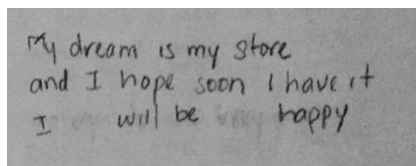 My dream is my store
and I hope soon I have it
I will be happy